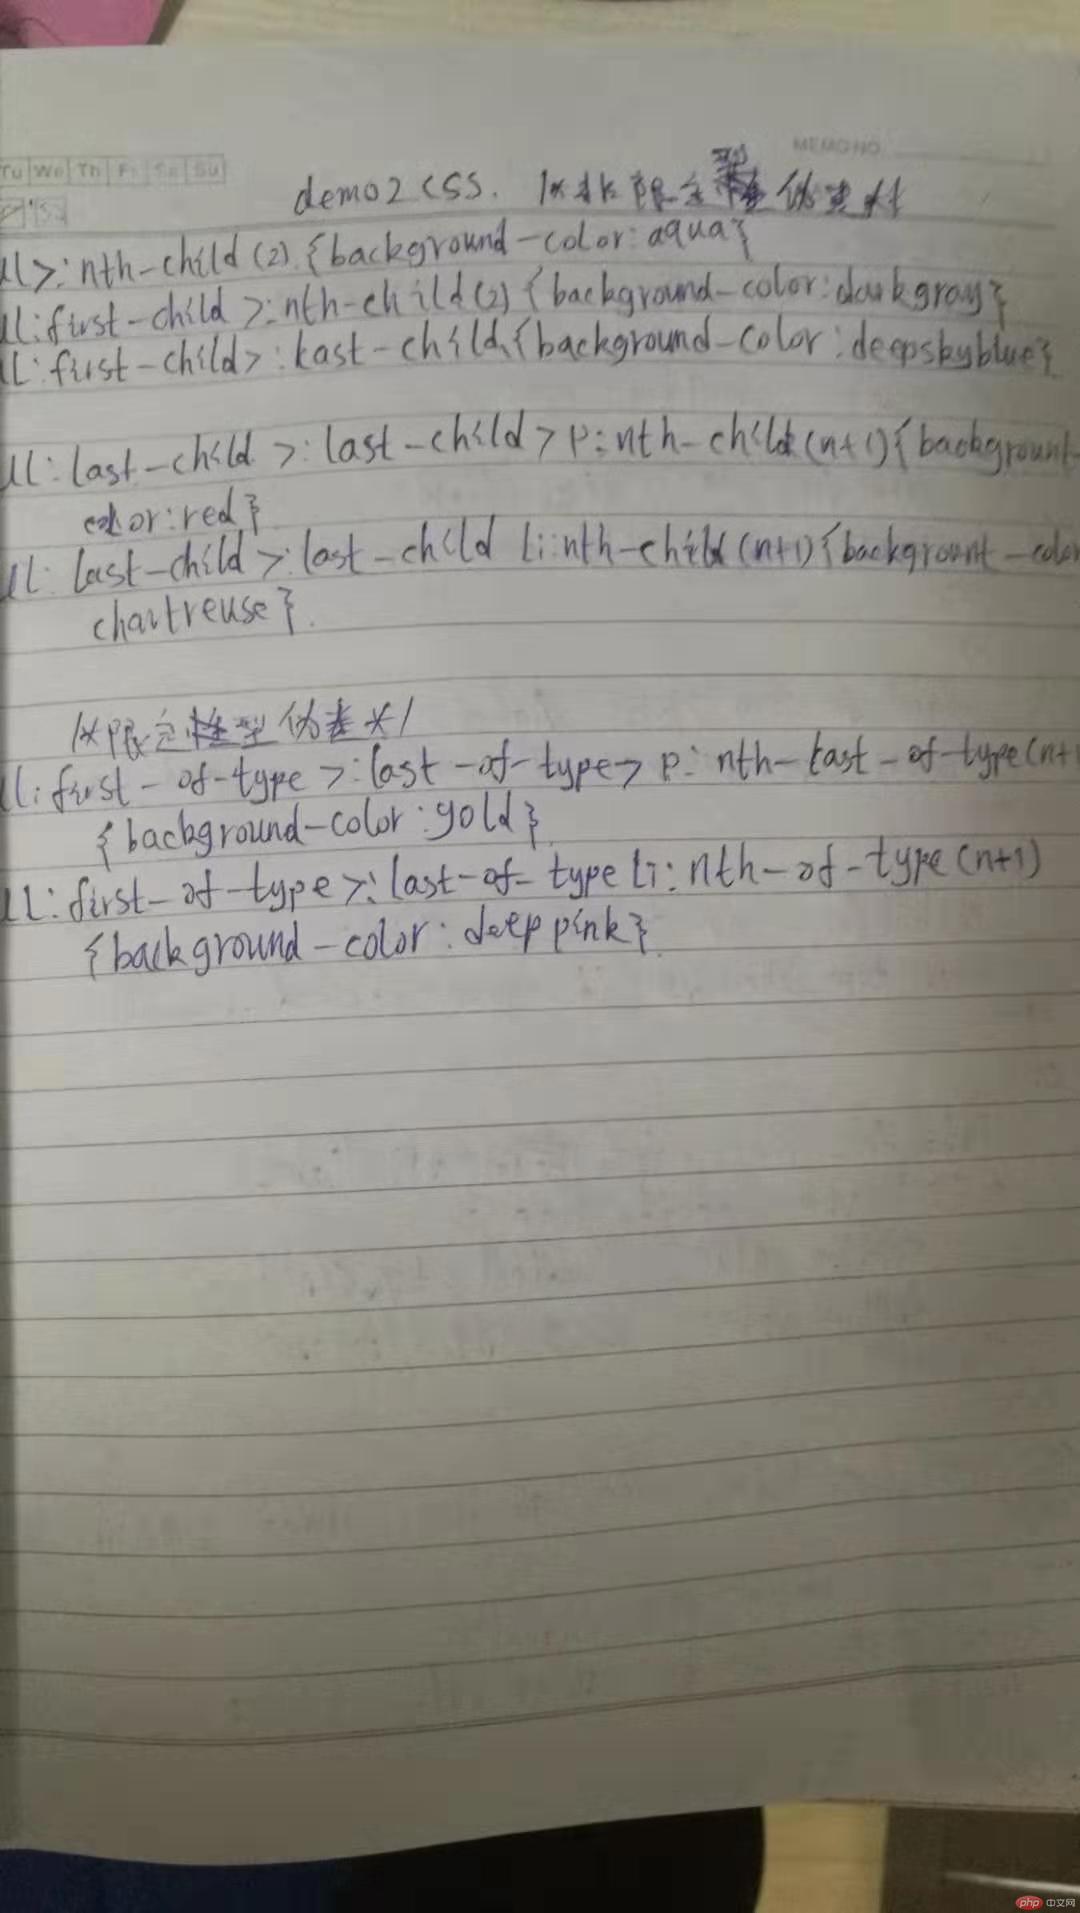 MEMO NO.
Tu We Th Fr Sa Su
demo2 css. /*非限定型伪类*/
ul>:nth-child(2).{background-color:aqua}
ul:first-child >:nth-child(2){background-color:darkgray}
ul:first-child>:last-child,{background-color:deepskyblue}
ul:last-child >:last-child>p:nth-child(n+1){background-
color:red}
ul:last-child>:last-child li:nth-child(n+1){backgrount-color
chartreuse}.
/*限定型伪类*/
ul:first-of-type >:last-of-type> p:nth-last-of-type(n+1
{background-color:gold}
ul:first-of-type>:last-of-type li:nth-of-type(n+1)
{background-color:deeppink}
php 中文网